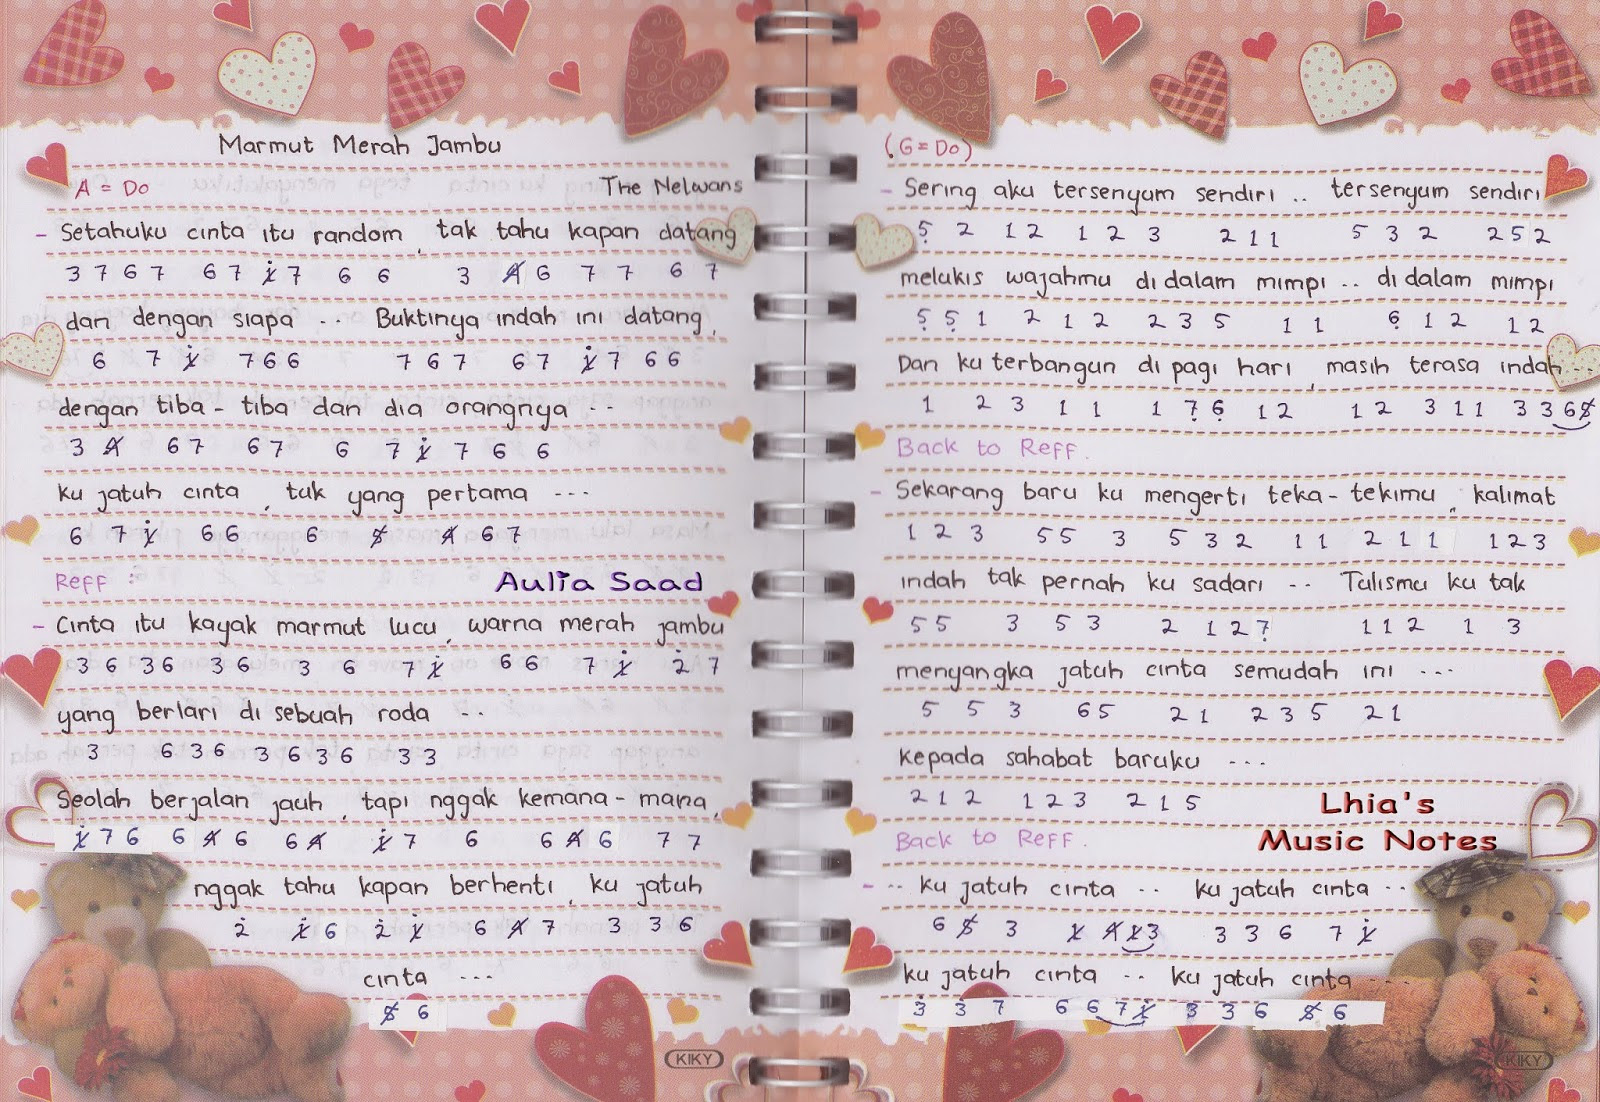 Marmut Merah Jambu
A = Do The Nelwans
- Setahuku cinta itu random, tak tahu kapan datang
3 7 6 7 6 7 1̸̇ 7 6 6 3 4̸ 6 7 7 6 7
dan dengan siapa ... Buktinya indah ini datang,
6 7 1̸̇ 7 6 6 7 6 7 6 7 1̸̇ 7 6 6
dengan tiba - tiba dan dia orangnya ...
3 4̸ 6 7 6 7 6 7 1̸̇ 7 6 6
ku jatuh cinta, tuk yang pertama ...
6 7 1̸̇ 6 6 6 5̸ 4̸ 6 7
Reff :
Aulia Saad
- Cinta itu kayak marmut lucu, warna merah jambu
3 6 3 6 3 6 3 6 7 1̸̇ 6 6 7 1̸̇ 2̇ 7
yang berlari di sebuah roda ..
3 6 3 6 3 6 3 6 3 3
Seolah berjalan jauh, tapi nggak kemana - mana,
1̸̇ 7 6 6 4̸ 6 6 4̸ 1̸̇ 7 6 6 4̸ 6 7 7
nggak tahu kapan berhenti, ku jatuh
2̇ 1̸̇ 6 2̇ 1̸̇ 6 4̸ 7 3 3 6
cinta ...
5̸ 6
KIKY
(G = Do)
- Sering aku tersenyum sendiri .. tersenyum sendiri
5̣ 2 1 2 1 2 3 2 1 1 5 3 2 2 5 2
melukis wajahmu di dalam mimpi .. di dalam mimpi
5̣ 5̣ 1 2 1 2 2 3 5 1 1 6̣ 1 2 1 2
Dan ku terbangun di pagi hari, masih terasa indah ..
1 2 3 1 1 1 7̣ 6̣ 1 2 1 2 3 1 1 3 3 6 5̸
Back to Reff.
- Sekarang baru ku mengerti teka - tekimu, kalimat
1 2 3 5 5 3 5 3 2 1 1 2 1 1 1 2 3
indah tak pernah ku sadari .. Tulismu ku tak
5 5 3 5 3 2 1 2 7̣ 1 1 2 1 3
menyangka jatuh cinta semudah ini ...
5 5 3 6 5 2 1 2 3 5 2 1
kepada sahabat baruku ...
2 1 2 1 2 3 2 1 5
Lhia's
Music Notes
Back to Reff.
- .. ku jatuh cinta .. ku jatuh cinta ..
6 5̸ 3 1̸ 4̸ 1̸ 3 3 3 6 7 1̸̇
ku jatuh cinta .. ku jatuh cinta ...
3̇ 3̇ 7 6 6 7 1̸̇ 3 3 6 5̸ 6
KIKY